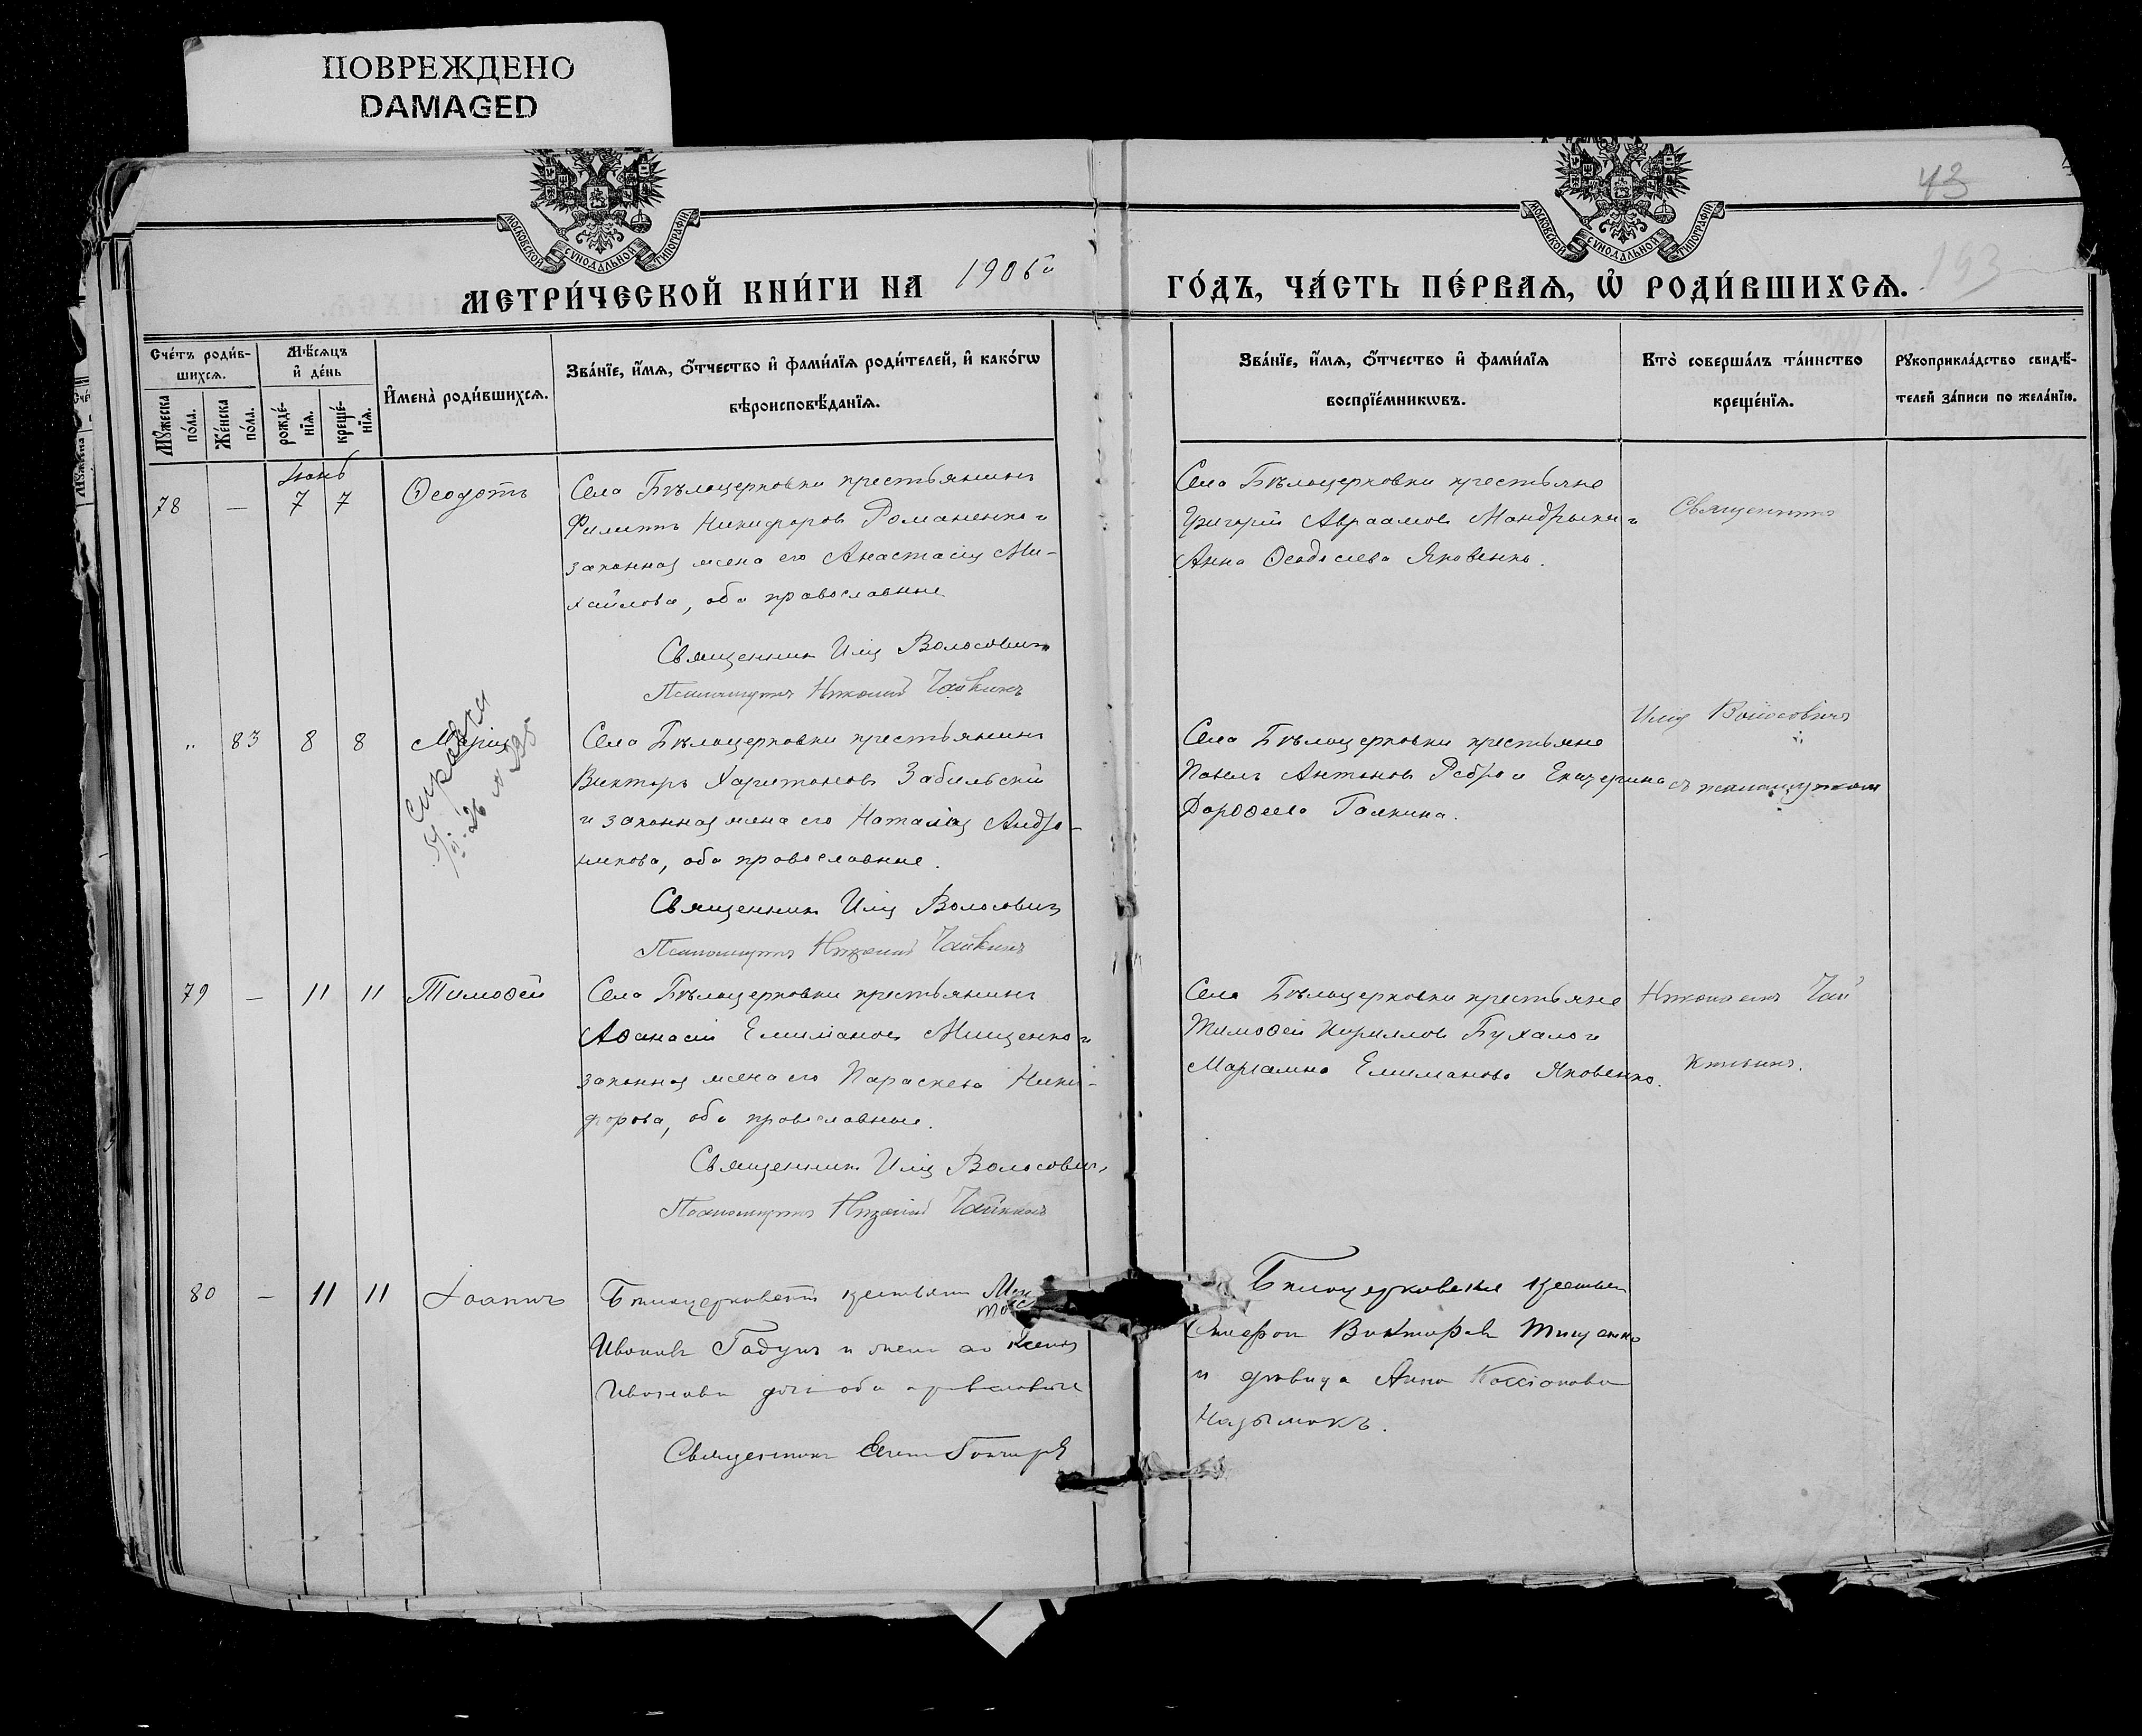 ПОВРЕЖДЕНО
DAMAGED
МОСКОВСКОЙ СУНОДАЛЬНОЙ ТИПОГРАФІИ
МОСКОВСКОЙ СУНОДАЛЬНОЙ ТИПОГРАФІИ
43
193
МЕТРИ́ЧЕСКОЙ КНИ́ГИ НА 1906й
ГО́ДЪ, ЧА́СТЬ ПЕ́РВАѦ, Ѡ҆ РОДИ́ВШИХСѦ.
Сче́тъ роди́в-
шихсѧ.
Мꙋжеска по́ла.
Же́нска по́ла.
Мѣ́сѧцъ
и҆ де́нь
рожде́-
нїѧ.
креще́-
нїѧ.
И҆мена̀ роди́вшихсѧ.
Зва́нїе, и҆́мѧ, ѻ҆́тчество и҆ фами́лїѧ роди́телей, и҆ како́гѡ
вѣроисповѣ́данїѧ.
Зва́нїе, и҆́мѧ, ѻ҆́тчество и҆ фами́лїѧ
воспрїе́мникѡвъ.
Кто̀ соверша́лъ та́инство
креще́нїѧ.
Рꙋкоприкла́дство свидѣ́-
телей за́писи по жела́нїю.
Іюнь
78 — 7 7 Ѳеодотъ
Села Бѣлоцерковки крестьянинъ
Филиппъ Никифоровъ Романенко и
законная жена его Анастасія Ми-
хайлова, оба православные
Священникъ Илія Волосовичъ
Псаломщикъ Николай Чайкинъ
Села Бѣлоцерковки крестьяне
Григорій Авраамовъ Мандрыка и
Анна Ѳеодосіева Яковенко.
Священникъ
„ 83 8 8 Марія
Села Бѣлоцерковки крестьянинъ
Викторъ Харитоновъ Забильскій
и законная жена его Наталія Андро-
никова, оба православные.
Священникъ Илія Волосовичъ
Псаломщикъ Николай Чайкинъ
Села Бѣлоцерковки крестьяне
Павелъ Антоновъ Ребро и Екатерина
Дороѳеева Галкина.
Илія Волосовичъ
съ псаломщикомъ
79 — 11 11 Тимоѳей
Села Бѣлоцерковки крестьянинъ
Аѳанасій Елимановъ Мищенко и
законная жена его Параскева Ники-
форова, оба православные.
Священникъ Илія Волосовичъ
Псаломщикъ Николай Чайкинъ
Села Бѣлоцерковки крестьяне
Тимоѳей Кирилловъ Бухало и
Маріамна Елиманова Яковенко.
Николаемъ Чай
кинымъ.
80 — 11 11 Іоаннъ
Ивановъ Гадунъ и жена его Ксенія
Ивановна оба православные
Священникъ
Викторовъ Тищенко
и девица Анна Кассіанова